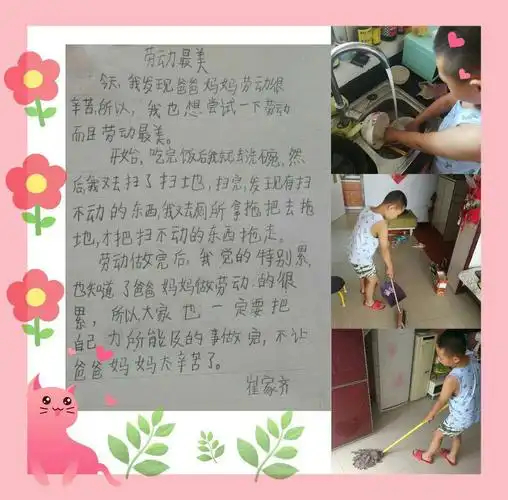 劳动最美
今天,我发现爸爸妈妈劳动很
辛苦,所以,我也想尝试一下劳动
而且劳动最美。
开始,吃完饭后我就去洗碗,然
后,我又去扫了扫地,扫完,发现有扫
不动的东西,我又去厕所拿拖把去拖
地,才把扫不动的东西拖走。
劳动做完后,我觉的特别累,
也知道了爸爸妈妈做劳动的很
累,所以大家也一定要把
自己力所能及的事做完,不让
爸爸妈妈太辛苦了。
崔家齐